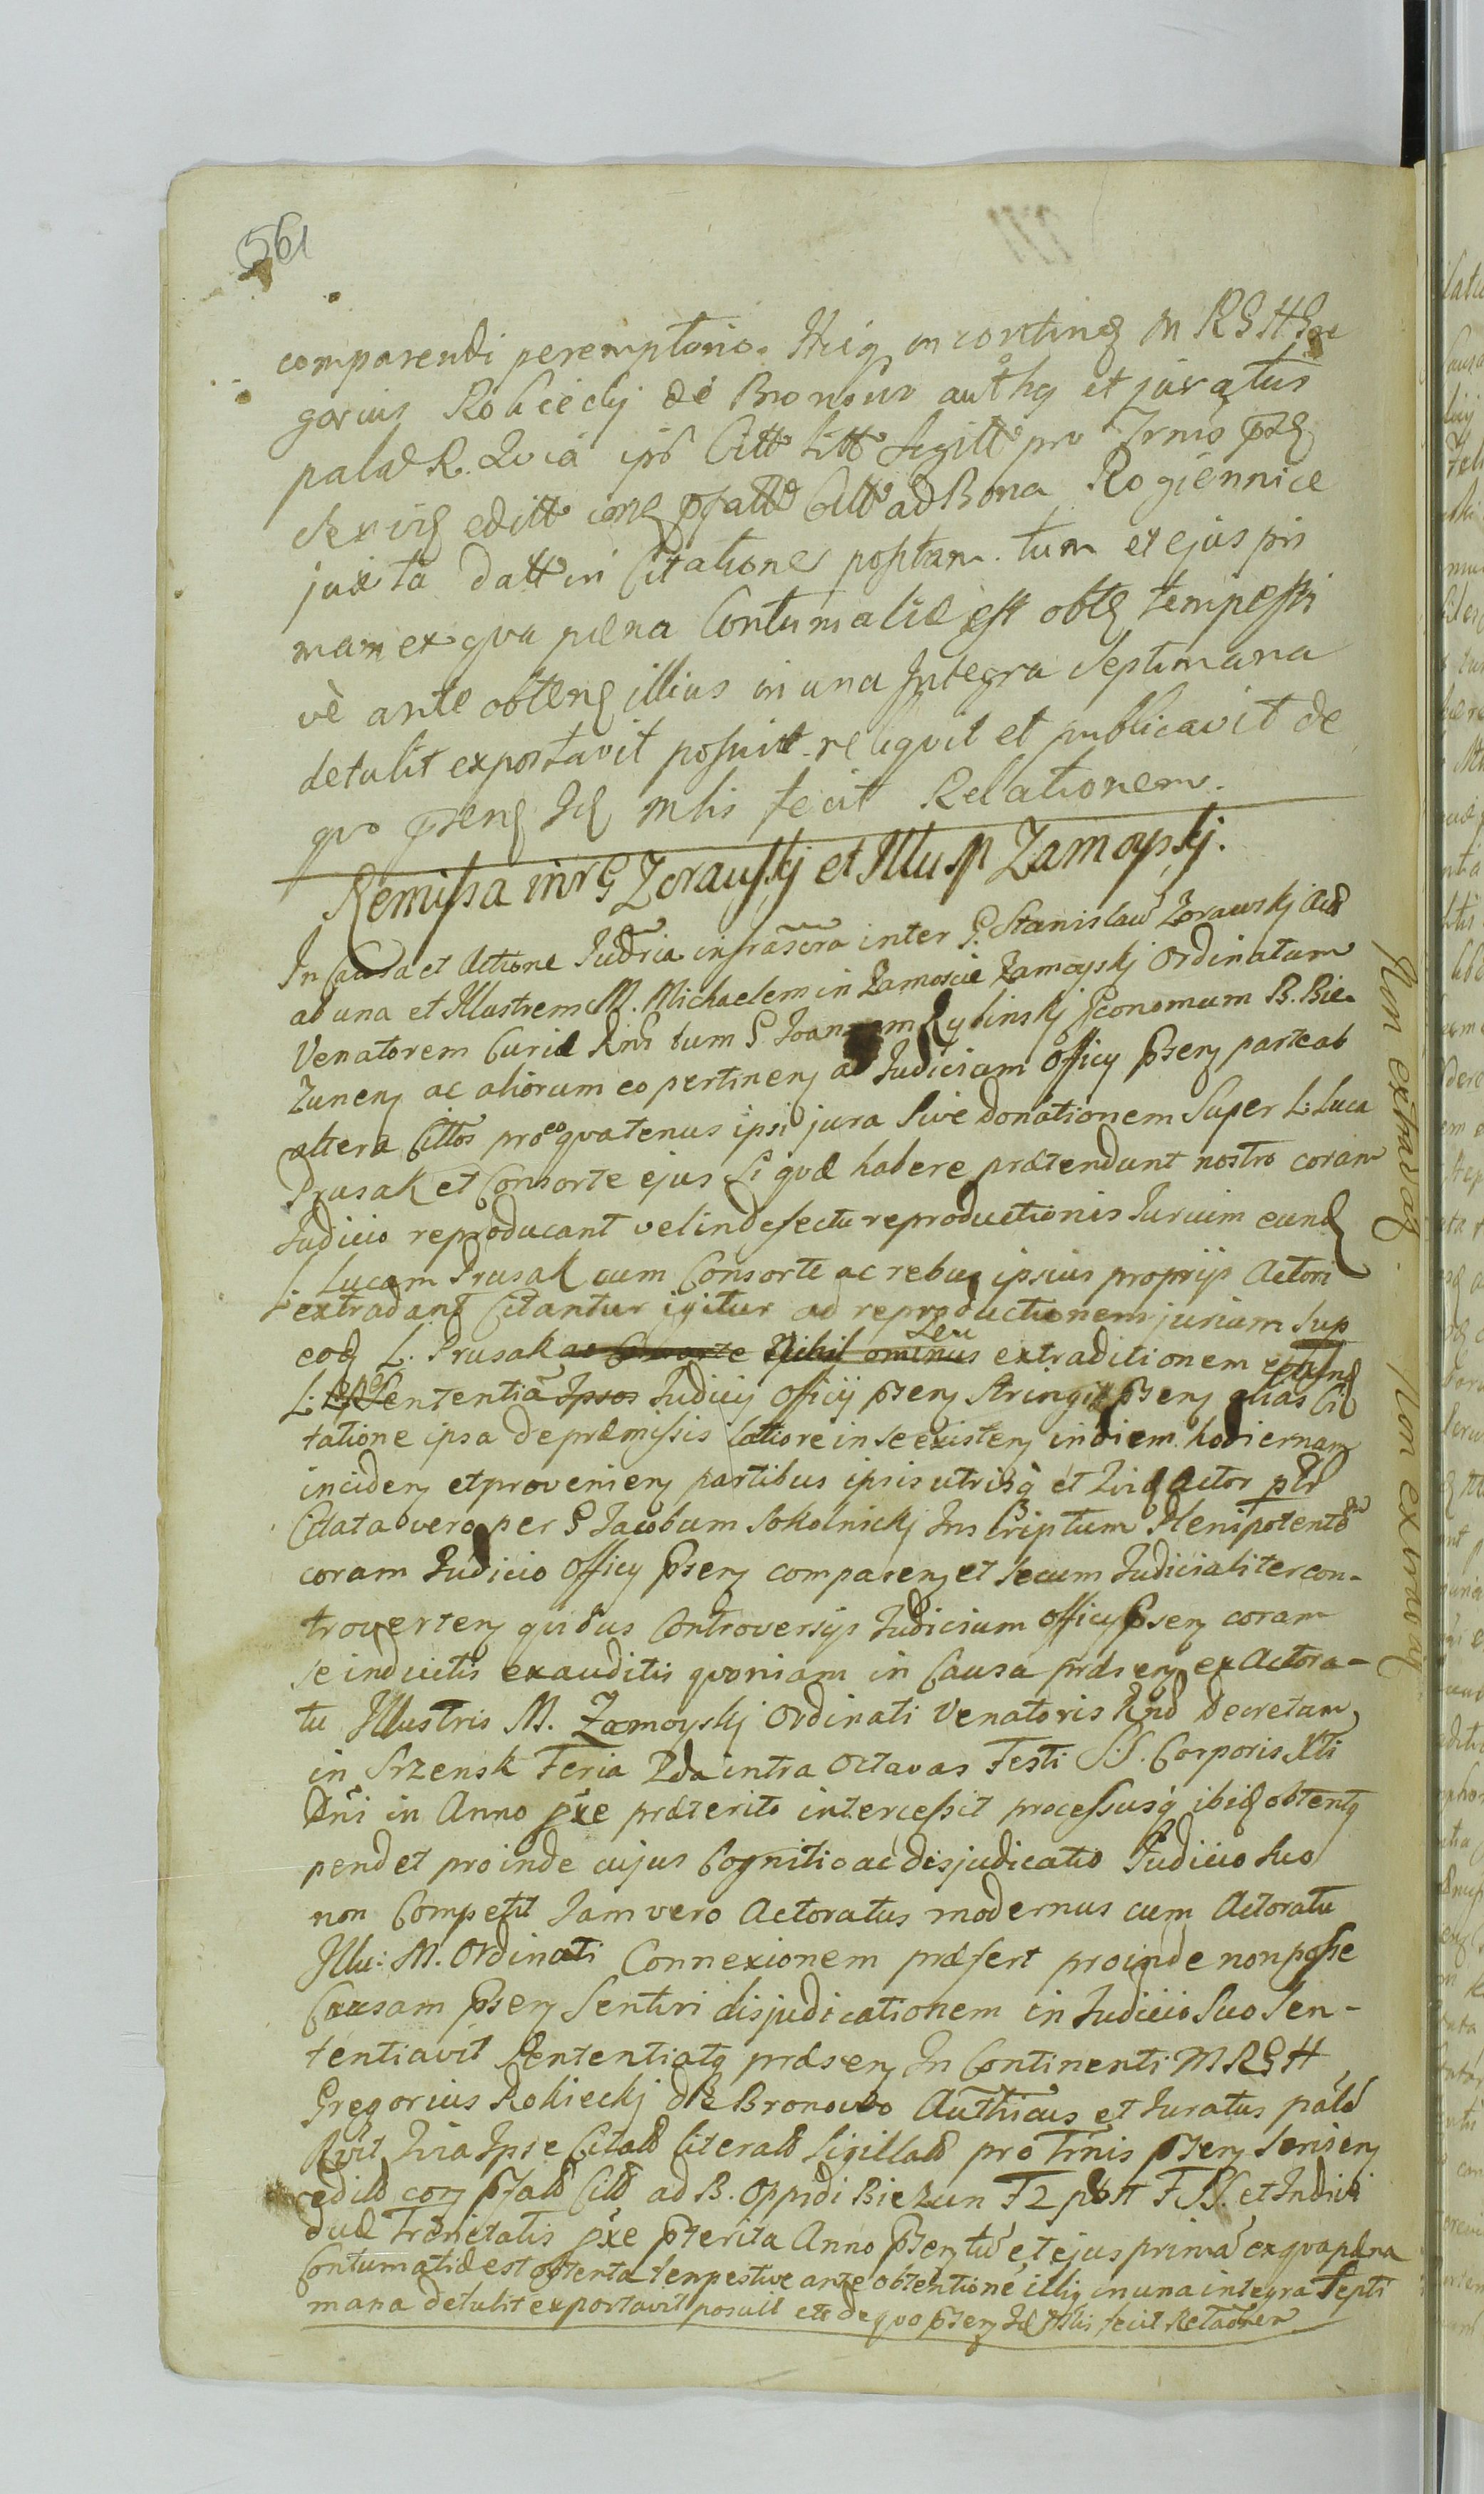 561
comparendi peremptorio. Hicq in contineq M RGH Gre
gorius Rokiecki de Bronowo authq et juratus
palaeR. Quia ipse Citt Litt Sigitt pro Trnis
editt ad Bona Rogiennice
juxta datt in Citatione positam. tum et ejus pri
mam ex qva paena Contumatiae est obtq tempesti
vè ante obtenq illius in una Integra Septimana
detulit exportavit posuit reliqvit et publicavit de
qvo Id Mlis fecit Relationem.
Remissa intr G Zorauskj et Illusp Zamoyskj.
In Causa et Actione Judria infrascra inter G. Stanislaū Zorauskj
ab una et Illustrem M. Michaelem in Zamoscie Zamoyskj Ordinatum
Venatorem Curiae tum G Joannem Rybinskj Economum B. Bie-
Zuneń ac aliorum eo pertineń ad Judicium Officij Pseń parte ab
altera Cittos pro eo qvatenus ipsi jura Sive Donationem Super L: Luca
Prusak et Consorte ejus Si qvae habere praetendunt nostro coram
Judicio reproducant vel in defectu reproductionis Jurium eund
L: Lucam Prusak cum Consorte ac rebus ipsius proprijs Actori
extradant Citantur igitur ad reproductionem jurium Sup
eod L. Prusak ac Consorte Nihil ominus Seu extraditionem
L: Sententia Ipsos Judicij Officij Pseń Pseń alias Ci
tatione ipsa de praemissis latiore in se existeń in diem hodiernam
incideń et provenień partibus ipsis utrisq̀ et Actor
Citata vero per G Jacobum Sokolnickj Inscriptum Plenipotent
coram Judicio Officij Pseń compareń et Secum Judicialiter con-
troverteń qvibus Controversijs Judicium Officij Pseń coram
se inductis exauditis qvoniam in Causa praeseń ex Actora-
tu Illustris M. Zamoyskj Ordinati Venatoris Decretum
in Szrensk Feria 2da intra Octavas Festi SS. Corporis Xti
Dni in Anno pxe praeterito intercessit processusq̀ ibid obtentq
pendet proinde cujus Cognitio ac disjudicatio Judicio Suo
non Competit Jam vero Actoratus modernus cum Actoratu
Illu: M. Ordinati Connexionem praefert proinde non posse
Causam Pseń Sentiri disjudicationem in Judicio Suo Sen-
tentiavit Sententiatq praeseń In Continenti M RGH
Gregorius Rokieckj de Bronowo Authicus et Juratus palā
Quia Ipse Citałd literałd Sigillałd pro Trnis Pseń
ad B. Oppidi Biezun F 2 post F SS. et Indivi
duae Trinietatis pxe Pterita Anno Pseń tū et ejus primā ex qva paena
Contumatiae est obtenta tempestive ante obtentionē illiq in una integra Septi
mana detulit exportavit posuit etc de qvo Pseń Id Mlis fecit Relaonem
Non extradaq. Non eximaq